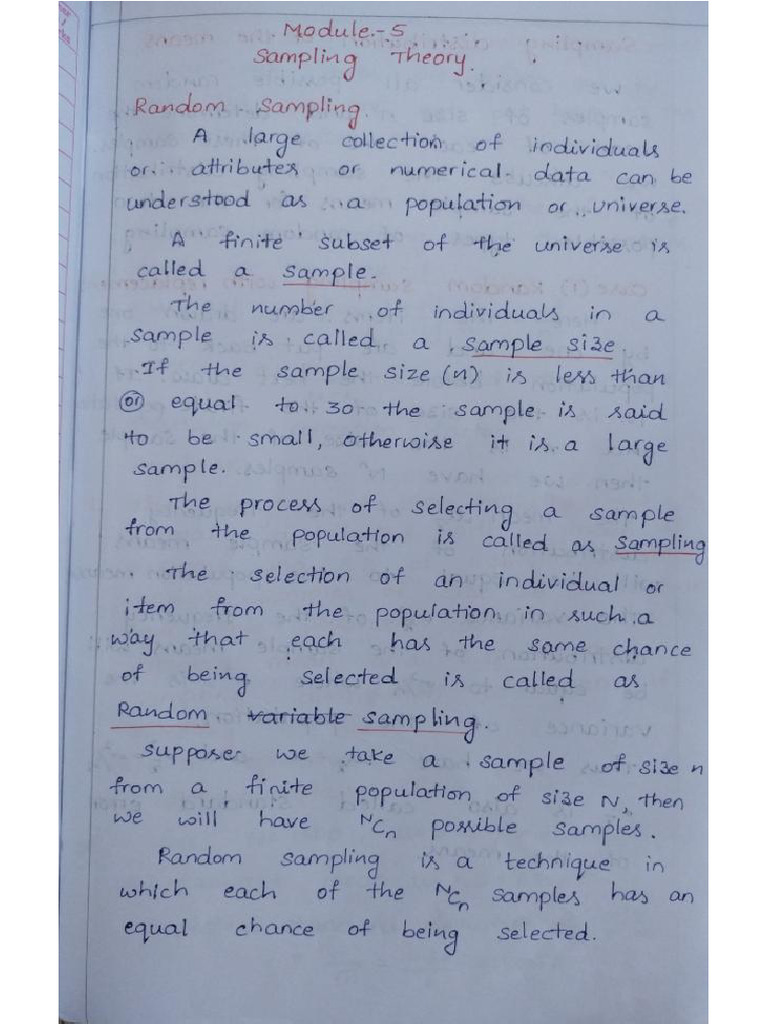 Module-5
Sampling Theory.
Random Sampling.
A large collection of individuals
or attributes or numerical data can be
understood as a population or universe.
A finite subset of the universe is
called a sample.
The number of individuals in a
sample is called a sample size.
If the sample size (n) is less than
or equal to 30 the sample is said
to be small, otherwise it is a large
sample.
The process of selecting a sample
from the population is called as sampling
The selection of an individual or
item from the population in such a
way that each has the same chance
of being selected is called as
Random variable sampling.
Suppose we take a sample of size n
from a finite population of size N, then
we will have ᴺCₙ possible samples.
Random sampling is a technique in
which each of the ᴺCₙ samples has an
equal chance of being selected.